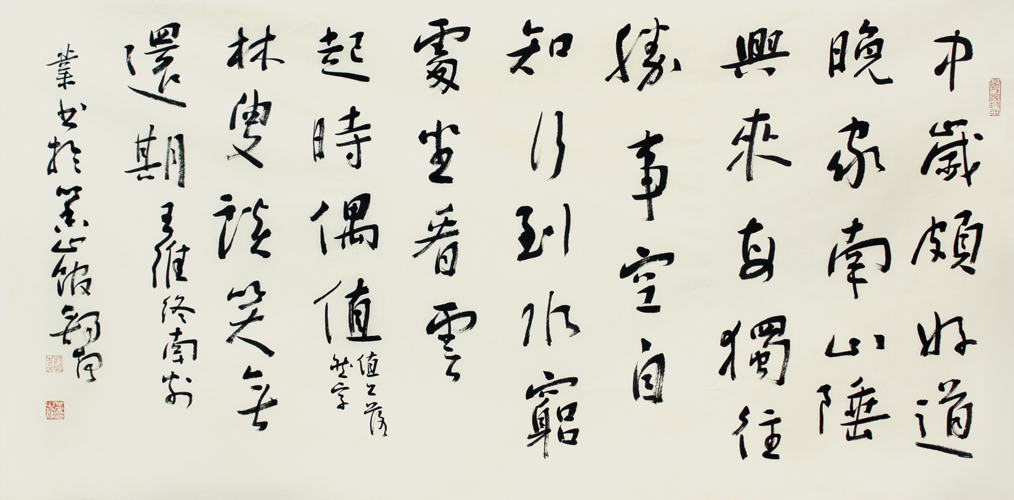 中歲頗好道
晚家南山陲
興來每獨往
勝事空自
知行到水窮
處坐看雲
起時偶值
值上落
然字
林叟談笑無
還期 王維終南别
業书於山館